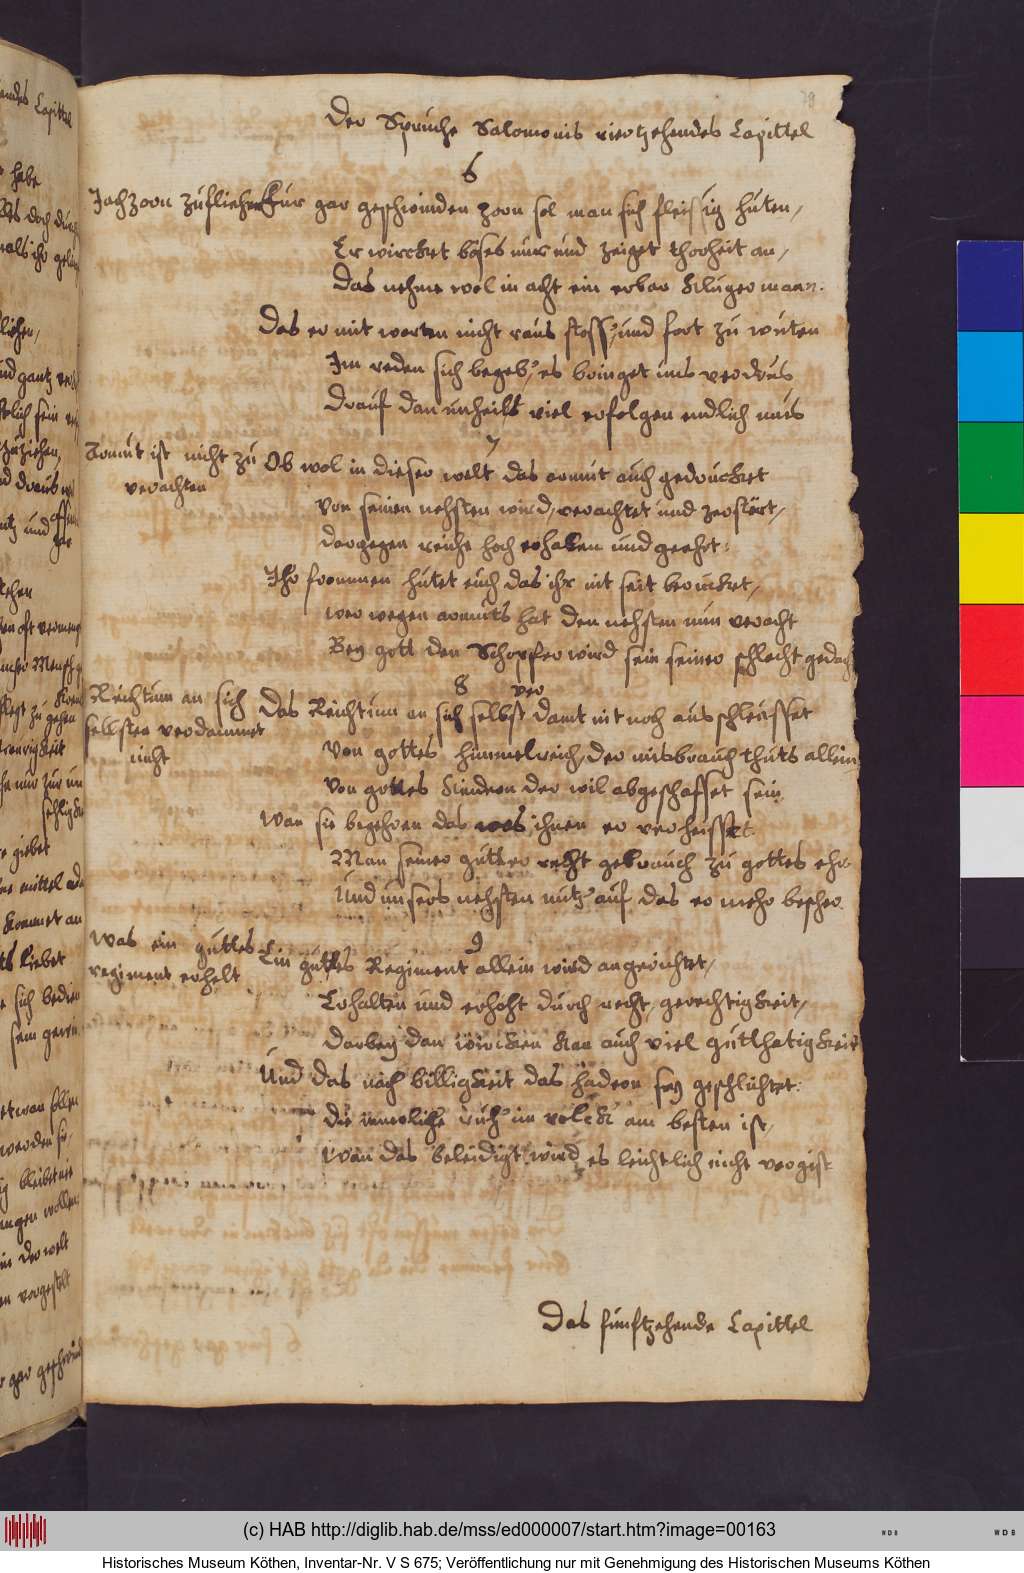 79
Der Spruche Salomonis viertzehendes Capittel
6
Jachzorn zufliehen
Fur gar geschwinden zorn sol man sich fleissig huten,
Er wircket boses nur und zeiget thorheit an,
Das nehme wol in acht ein erbar kluger mann.
Das er mit worten nicht raus stoss, und fort zu wuten
Im reden sich begeb, es bringet uns verdrus
Drauf dan unheils viel erfolgen endlich mus
7
Armut ist nicht zu
verachten
Ob wol in dieser welt das armut auch gedrucket
Von seinen nehsten wird, verachtet und zerstört,
dargegen reiche hoch erhaben und geehrt:
Ihr frommen hutet euch das ihr nit seit berucket,
wer wegen armuts hat den nehsten nun veracht
Bey gott den Schopfer wird sein seiner schlecht gedacht
8
Reichtum an sich
selbsten verdammet
nicht
ver
Das Reichtum an sich selbst damt nit noch ausschleusset
Von gottes himmelreich, der misbrauch thuts allein,
Von gottes kindern der wil abgeschaffet sein
Wan sie begehren das was ihnen er verheisset
Man seiner gutter recht gebrauch zu gottes ehr
Und unsers nehsten nutz auf das er mehr bescher
9
Was ein guttes
regiment erhelt
Ein guttes Regiment allein wird angerichtet,
Erhalten und erhoht durch recht, gerechtigkeit,
Darbey dan wircken kan auch viel gutthatigkeit
Und das nach billigkeit das hadern sey geschlichtet:
die innerliche ruh im volck am besten ist,
Wan das beleidigt wird es leichtlich nicht vergist
Das funftzehende Capittel
(c) HAB http://diglib.hab.de/mss/ed000007/start.htm?image=00163
WDB
WDB
Historisches Museum Köthen, Inventar-Nr. V S 675; Veröffentlichung nur mit Genehmigung des Historischen Museums Köthen